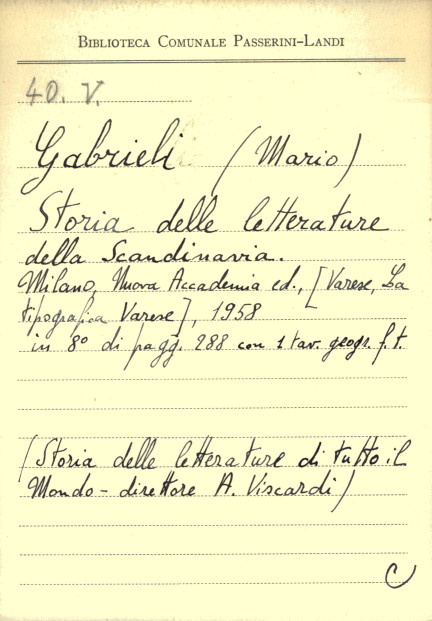 BIBLIOTECA COMUNALE PASSERINI-LANDI
40. V.
Gabrieli (Mario)
Storia delle letterature
della Scandinavia.
Milano, Nuova Accademia ed., [Varese, La
tipografica Varese], 1958
in 8° di pagg. 288 con 1 tav. geogr. f.t.
(Storia delle letterature di tutto il
Mondo - direttore A. Viscardi)
C